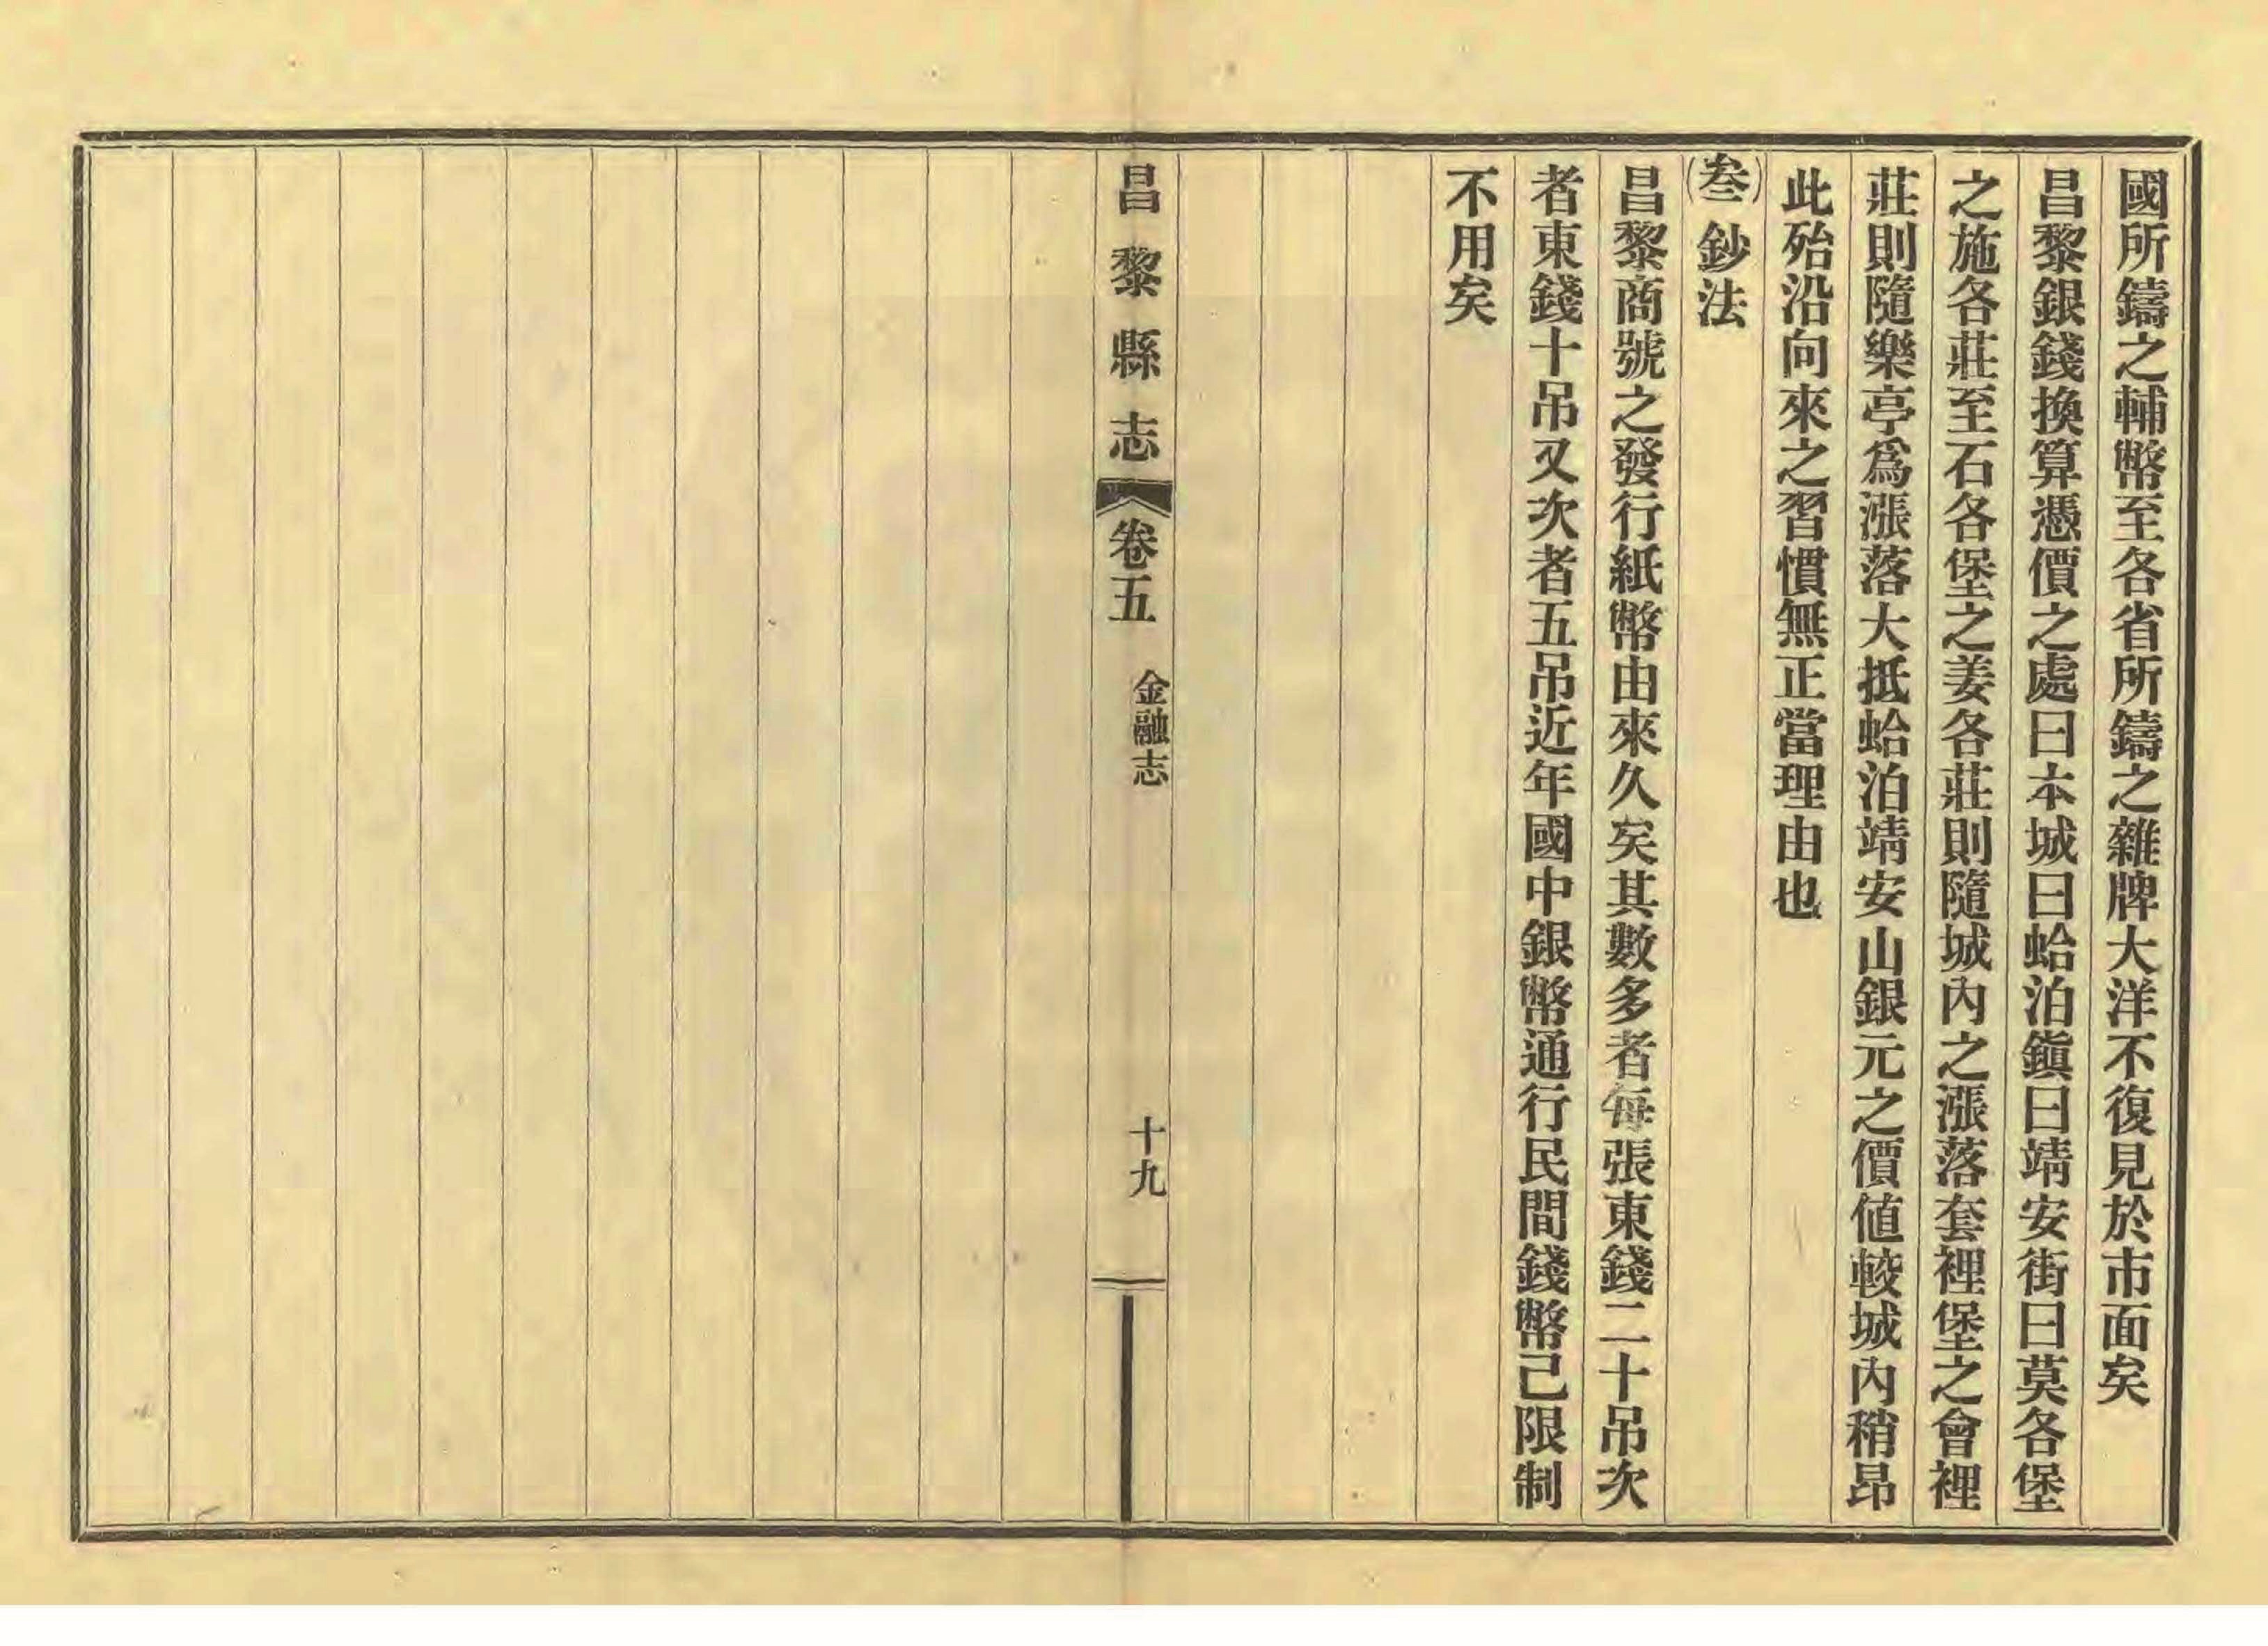 國所鑄之輔幣至各省所鑄之雜牌大洋不復見於市面矣
昌黎銀錢換算憑價之處曰本城曰蛤泊鎭曰靖安街曰莫各堡
之施各莊至石各堡之姜各莊則隨城內之漲落套裡堡之會裡
莊則隨樂亭爲漲落大抵蛤泊靖安山銀元之價値較城內稍昂
此殆沿向來之習慣無正當理由也
(叁)鈔法
昌黎商號之發行紙幣由來久矣其數多者每張東錢二十吊次
者東錢十吊又次者五吊近年國中銀幣通行民間錢幣己限制
不用矣
昌黎縣志 卷五 金融志 十九